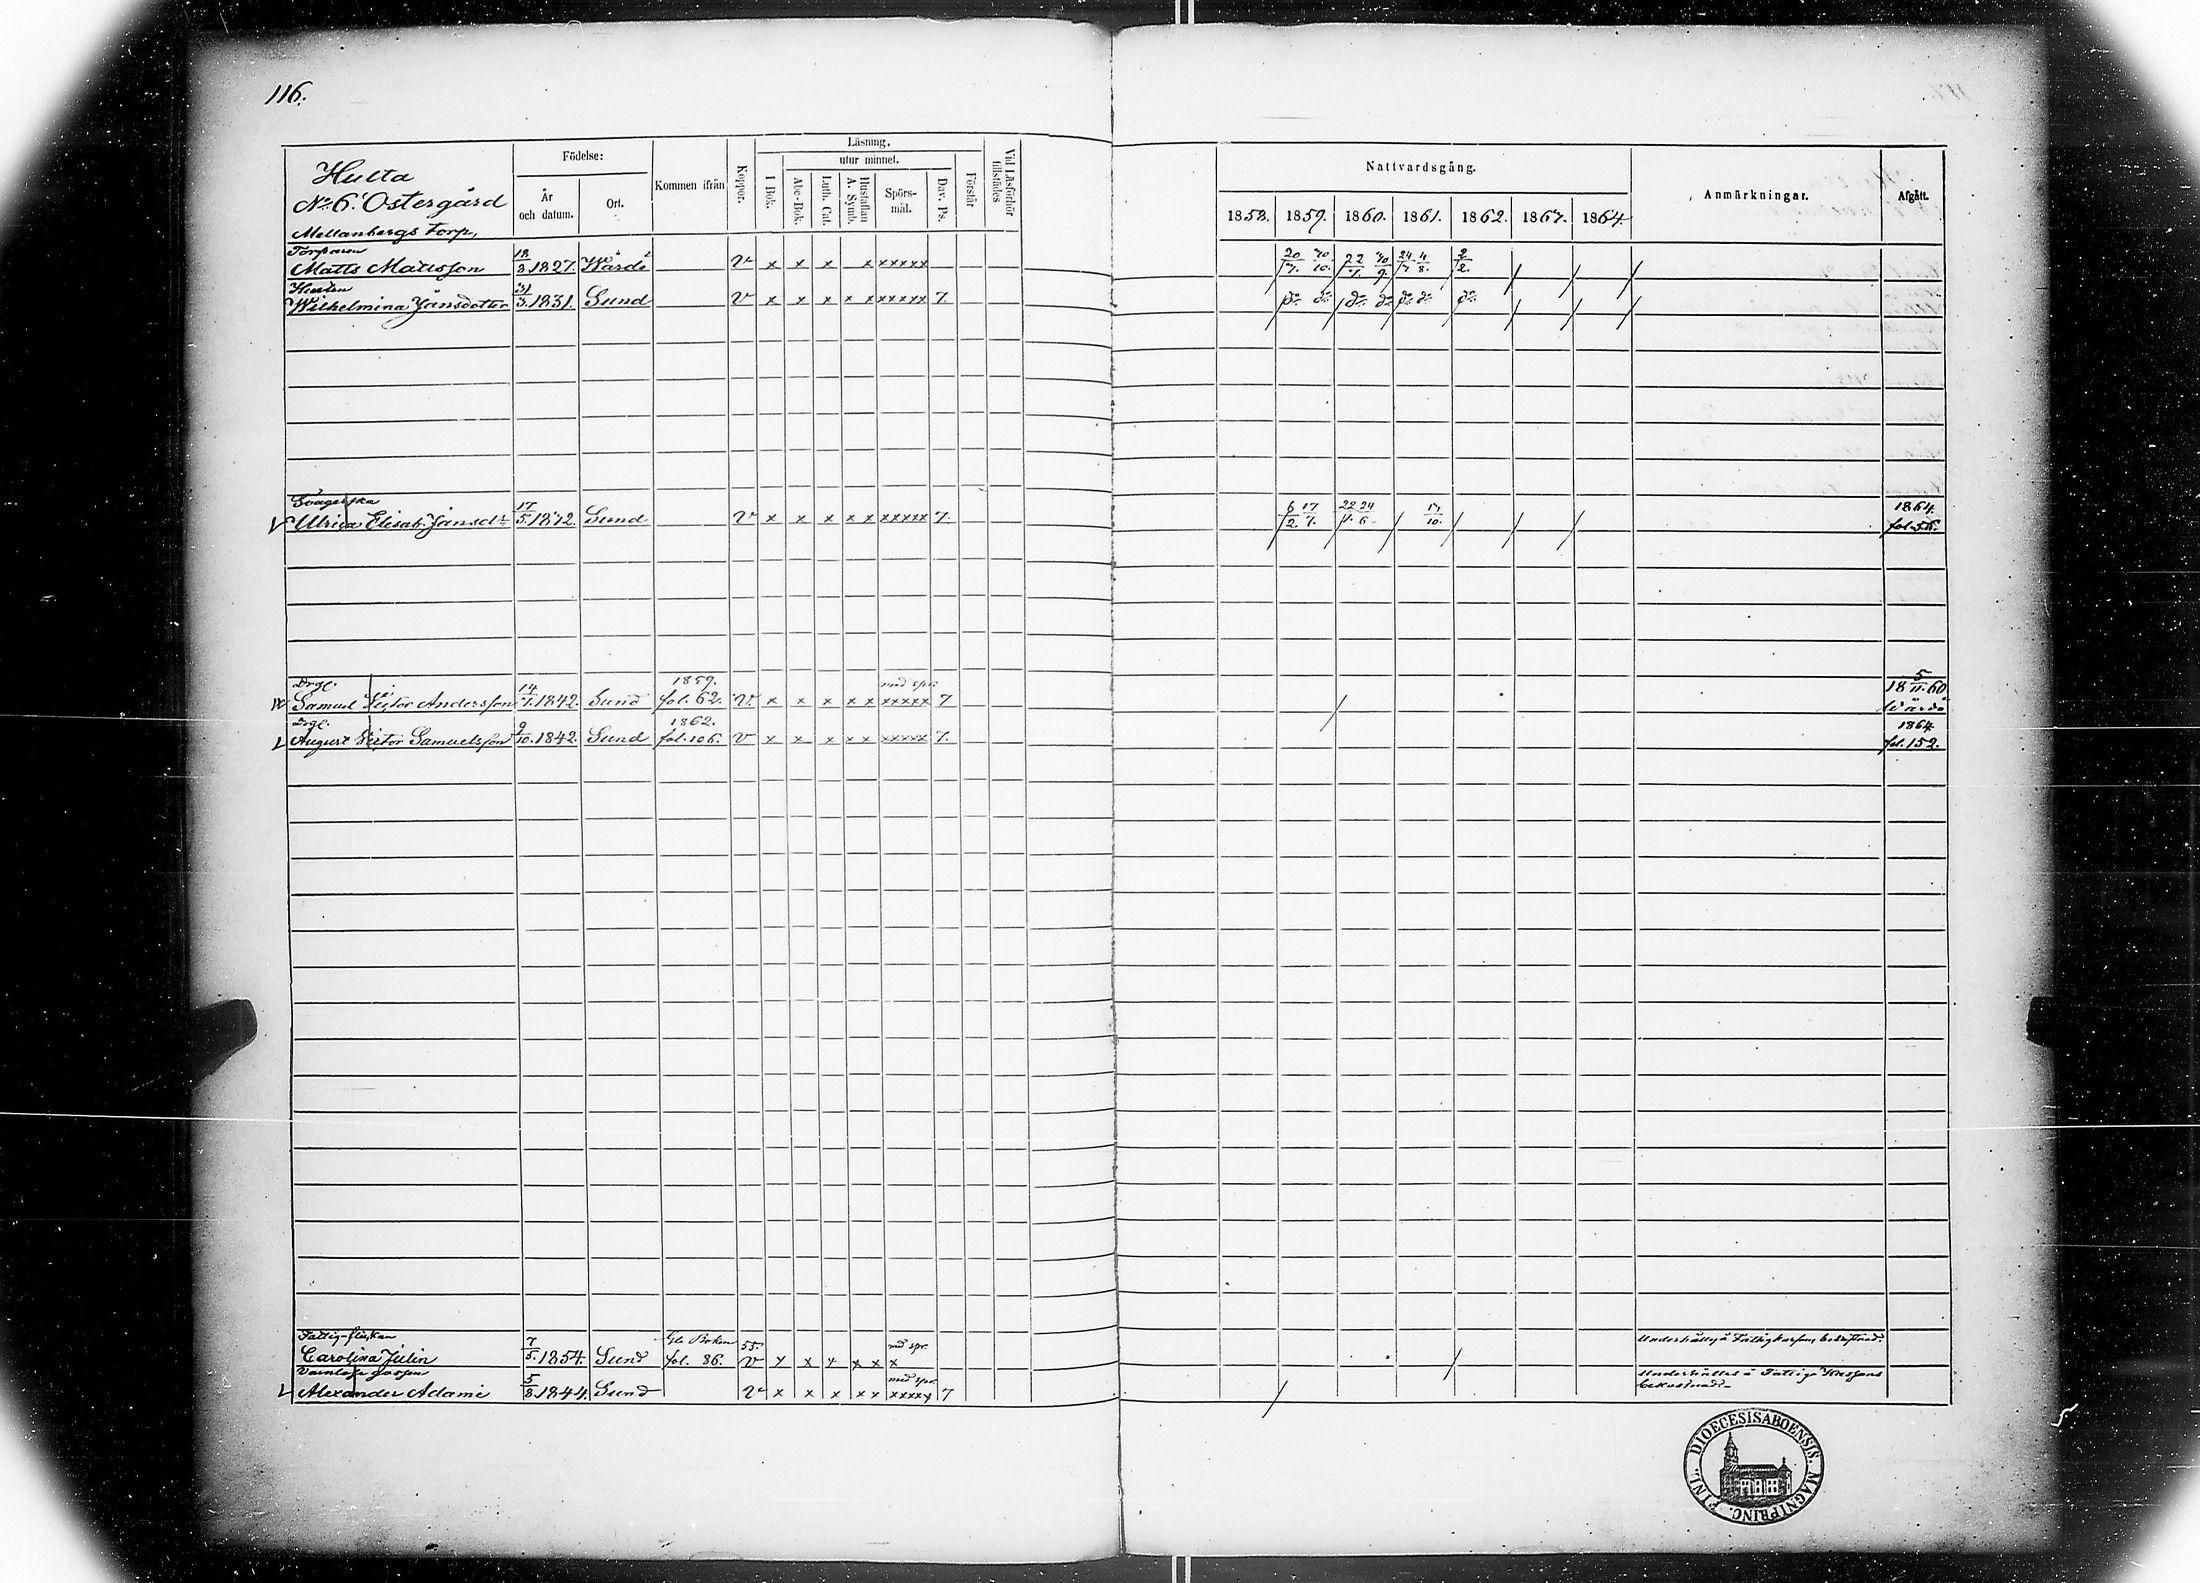 116.
Hulta
No 6. Östergård
Mellanbergs Torp,
Födelse:
År och datum.
Ort.
Kommen ifrån
Koppor.
Läsning,
I Bok.
utur minnet.
Abc-Bok.
Luth. Cat.
Hustaflan A. Symb.
Spörsmål.
Dav. Ps.
Förstår
Vid Läsförhör tillstädes
Nattvardsgång.
1858. 1859. 1860. 1861. 1862. 1863. 1864.
Anmärkningar.
Afgått.
Torparen
Matts Matsson 18/3 1827. Wårdö v x x x x xxxxx 20/7. 30/10. 22/4. 30/9. 24/7 4/8. 2/2.
Hustru
Wilhelmina Jansdotter 31/3. 1831. Sund v x x x x x xxxxx 7. do do do do do do do
Svägerska
Ulrica Elisab. Jansdr 17/5. 1842. Sund v x x x x x xxxxx 7. 6/2. 17/7. 22/4. 24/6. 13/10. 1864. fol. 56.
Drgl.
Samuel Victor Andersson 14/7. 1842. Sund 1859. fol. 62. v. x x x x x med spr. xxxxx 7 18 5/11. 60 Wårdö
Drgl.
August Victor Samuelsson 9/10. 1842. Sund 1862. fol. 106. v x x x x x xxxxx 7. 1864. fol. 152.
Fattig-flickan
Carolina Julin 7/5. 1854. Sund Gla Boken fol. 86. 55. v x x x x x med spr. x Underhålles å Fattigkassans bekostnad.
Alexander Adami 5/8. 1844. Sund v x x x x x med spr. xxxxx 7 Underhålles å Fattige Kassans bekostnad.
FINL. DIOECESIS ABOENSIS. MAGNI PRINC.